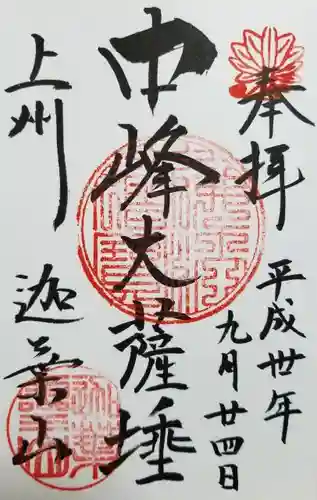 奉拝
平成卅年
九月廿四日
中峰大薩埵
上州
迦葉山